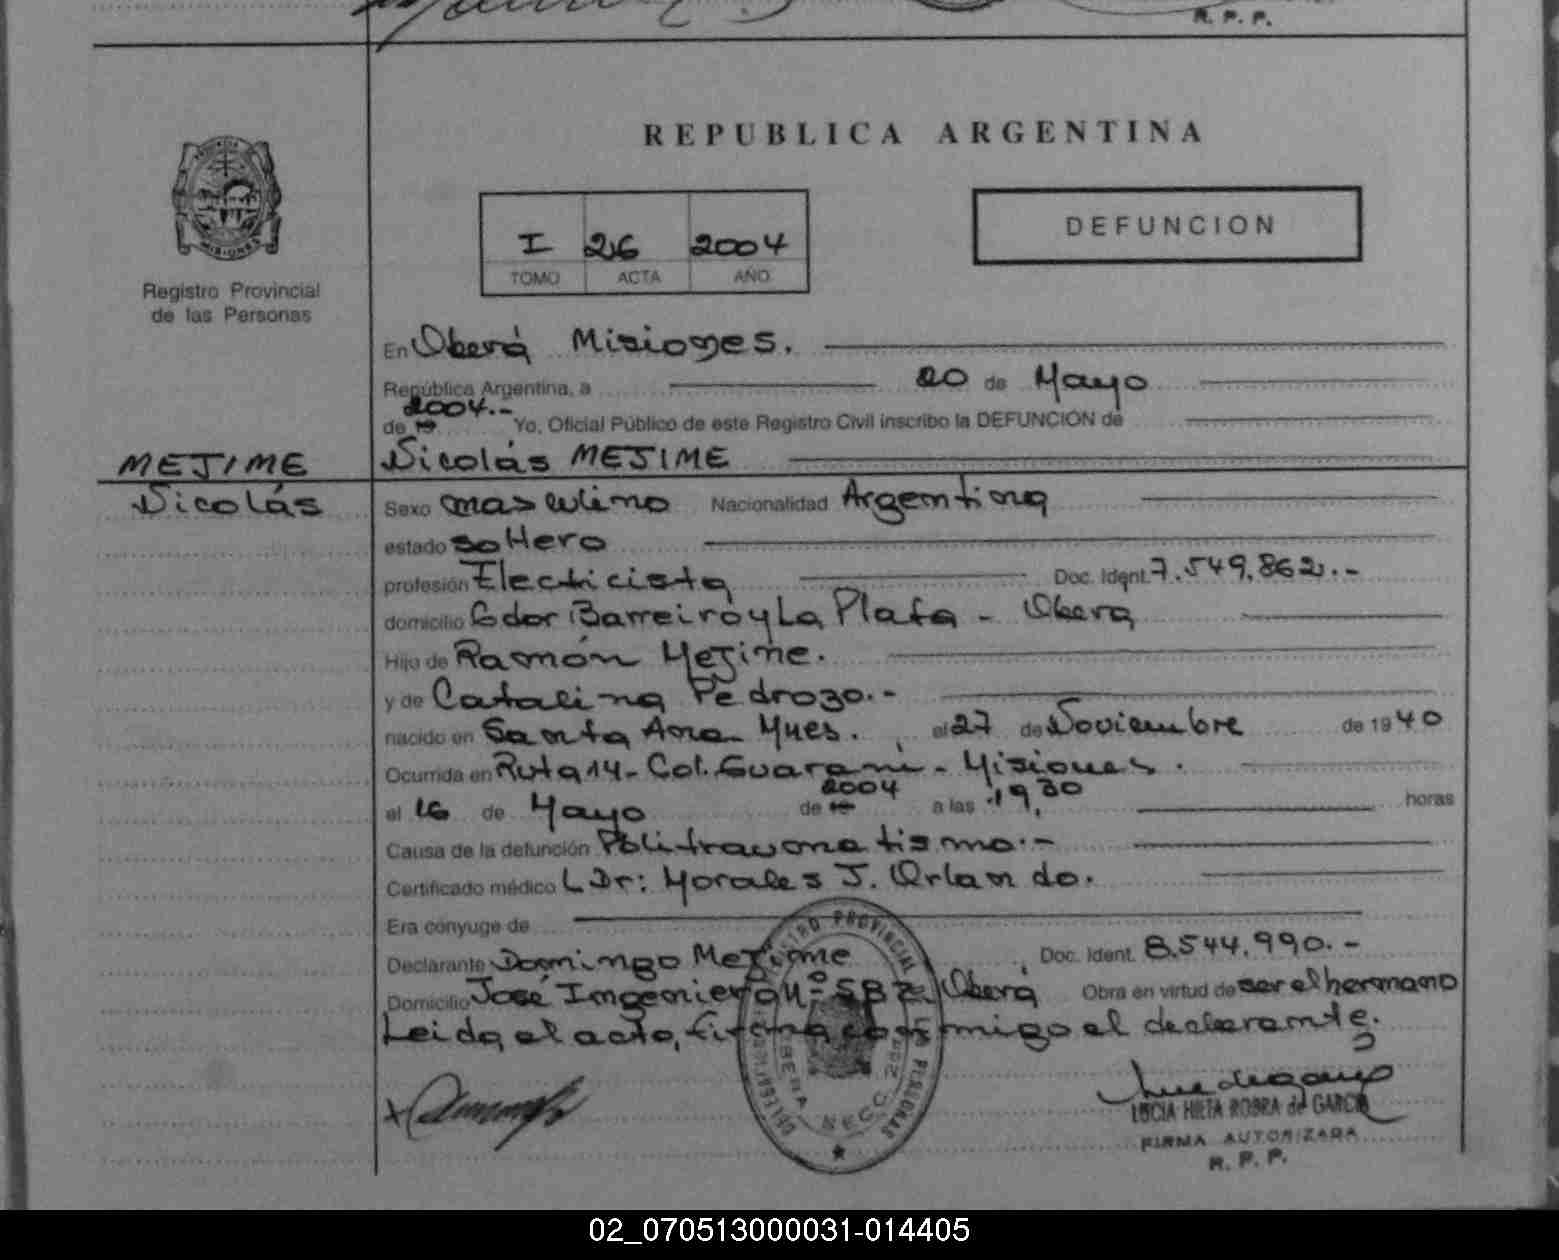 R. P. P.
REPUBLICA ARGENTINA
I 26 2004
TOMO ACTA AÑO
DEFUNCION
MISIONES
Registro Provincial
de las Personas
En Oberá Misiones.
República Argentina, a 20 de Mayo
2004.-
de 19 Yo, Oficial Público de este Registro Civil inscribo la DEFUNCIÓN de
MEJIME Nicolás MEJIME
Nicolás
Sexo masculino Nacionalidad Argentina
estado soltero
profesión Electricista Doc. Ident. 7.549.862.-
domicilio Gdor Barreiro y La Plata - Obera
Hijo de Ramón Mejime.
y de Catalina Pedrozo.-
nacido en Santa Ana Mnes. el 27 de Noviembre de 1940
Ocurrida en Ruta 14- Col. Guarani - Misiones.
2004
el 16 de Mayo de 19 a las 19,30 horas
Causa de la defunción Politraumatismo.-
Certificado médico Dr: Morales J. Orlando.
Era cónyuge de
Declarante Domingo Mejime Doc. Ident. 8.544.990.-
Domicilio José Ingeniero Nº 587 Oberá Obra en virtud de ser el hermano
Leida el acta, firma conmigo el declarante.
REGISTRO PROVINCIAL DE LAS PERSONAS
LUCIA HILTA ROBRA de GARCIA
FIRMA AUTORIZADA
R. P. P.
02_070513000031-014405